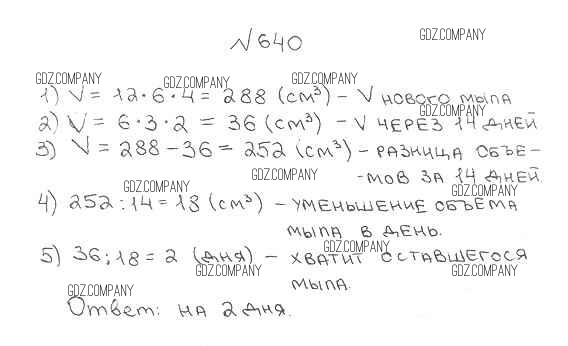 №640
GDZ.COMPANY
GDZ.COMPANY GDZ.COMPANY GDZ.COMPANY
1) V = 12 · 6 · 4 = 288 (см³) – V нового мыла
GDZ.COMPANY
2) V = 6 · 3 · 2 = 36 (см³) – V через 14 дней
3) V = 288 – 36 = 252 (см³) – разница объе-
GDZ.COMPANY GDZ.COMPANY
-мов за 14 дней.
GDZ.COMPANY
4) 252 : 14 = 18 (см³) – уменьшение объема
мыла в день.
GDZ.COMPANY
5) 36 : 18 = 2 (дня) – хватит оставшегося
GDZ.COMPANY GDZ.COMPANY
мыла.
GDZ.COMPANY
Ответ: на 2 дня.